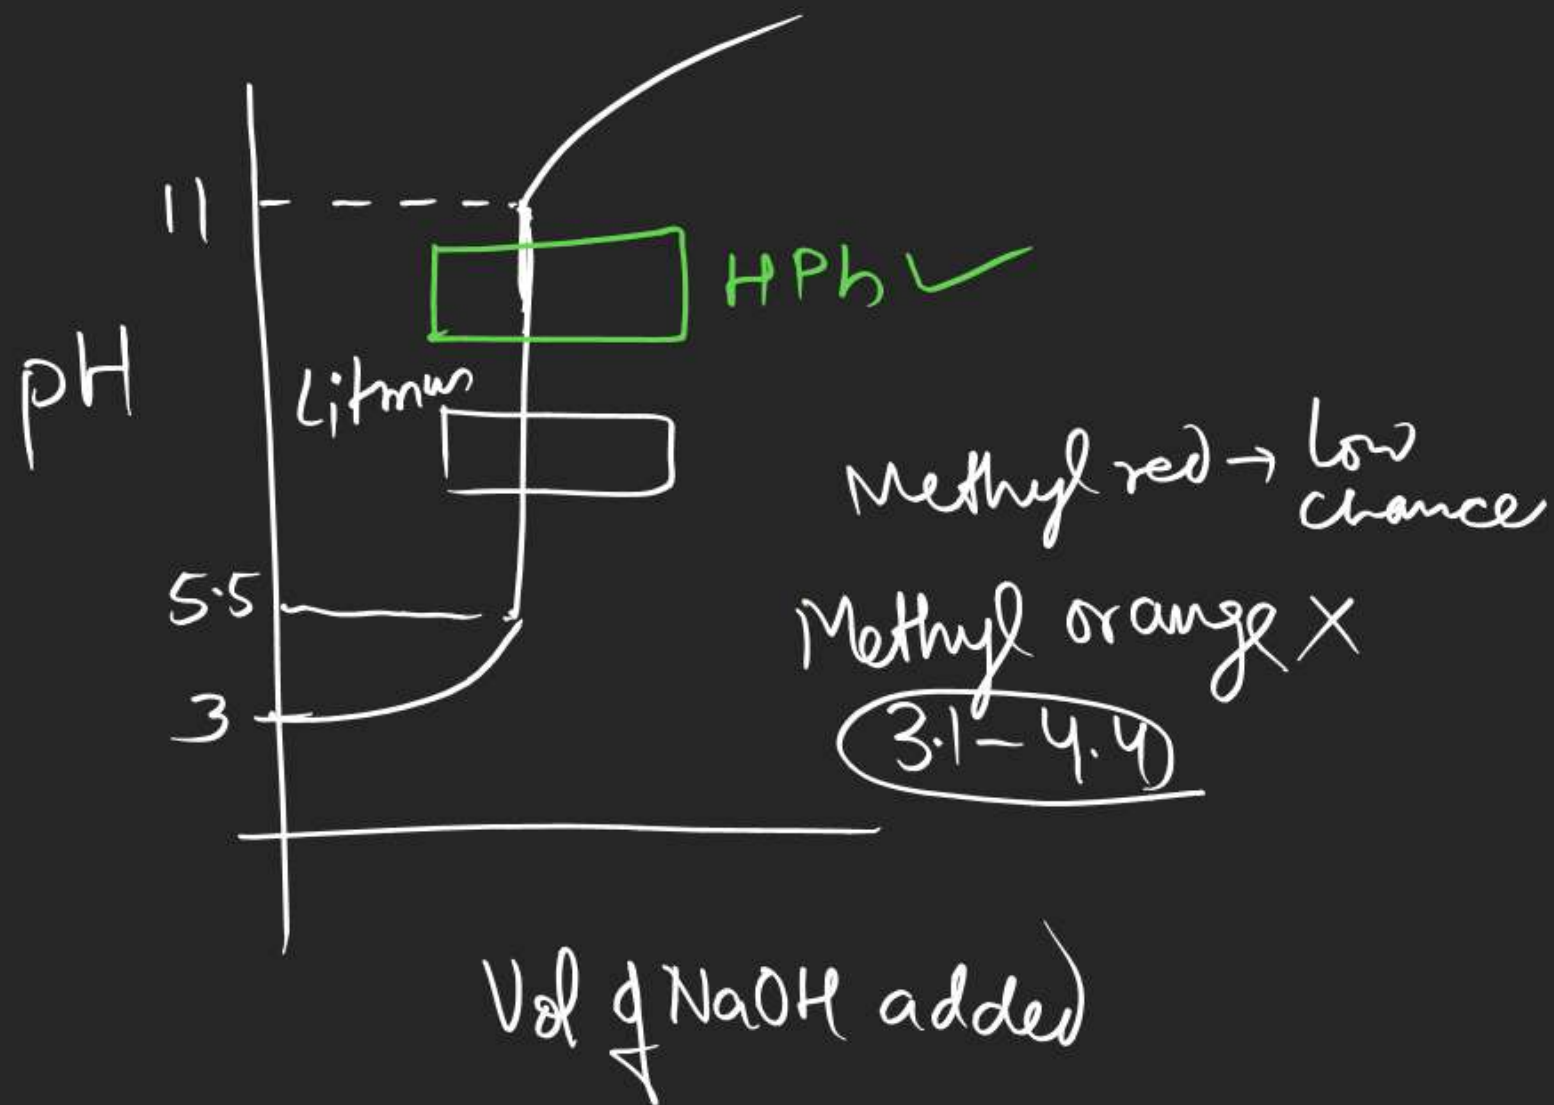 11
HPh ✓
pH
Litmus
Methyl red → Low
chance
5.5
Methyl orange ×
3
3.1-4.4
Vol of NaOH added